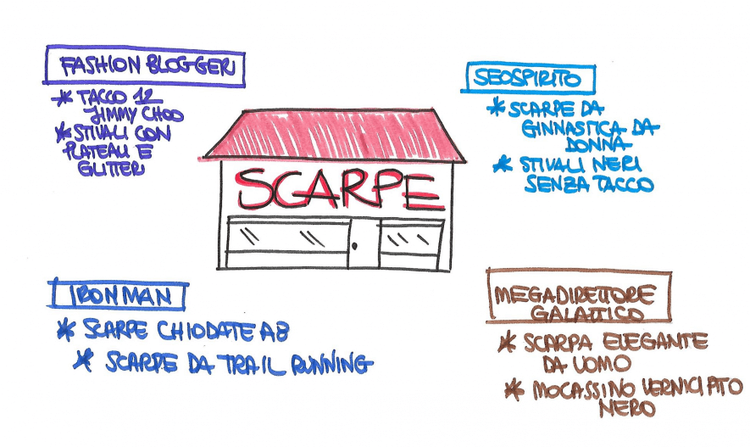 FASHION BLOGGER
* TACCO 12
JIMMY CHOO
* STIVALI CON
PLATEAU E
GLITTER
SEOSPIRITO
* SCARPE DA
GINNASTICA DA
DONNA
* STIVALI NERI
SENZA TACCO
SCARPE
IRONMAN
* SCARPE CHIODATE A8
* SCARPE DA TRAIL RUNNING
MEGADIRETTORE
GALATTICO
* SCARPA ELEGANTE
DA UOMO
* MOCASSINO VERNICIATO
NERO